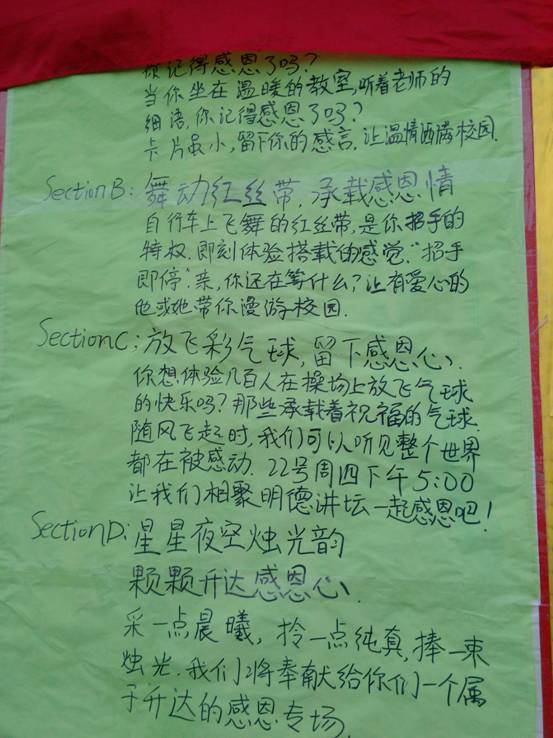 你记得感恩了吗？
当你坐在温暖的教室，听着老师的
细语，你记得感恩了吗？
卡片虽小，留下你的感言，让温情洒满校园.
Section B：舞动红丝带，承载感恩情
自行车上飞舞的红丝带，是你招手的
特权，即刻体验搭载的感觉，“招手
即停”.亲，你还在等什么？让有爱心的
他或她带你漫游校园.
Section C：放飞彩气球，留下感恩心、
你想体验几百人在操场上放飞气球
的快乐吗？那些承载着祝福的气球
随风飞起时，我们可以听见整个世界
都在被感动. 22号周四下午5:00
让我们相聚明德讲坛一起感恩吧！
Section D：星星夜空烛光韵
颗颗升达感恩心、
采一点晨曦，拎一点纯真，捧一束
烛光.我们将奉献给你们一个属
于升达的感恩专场.